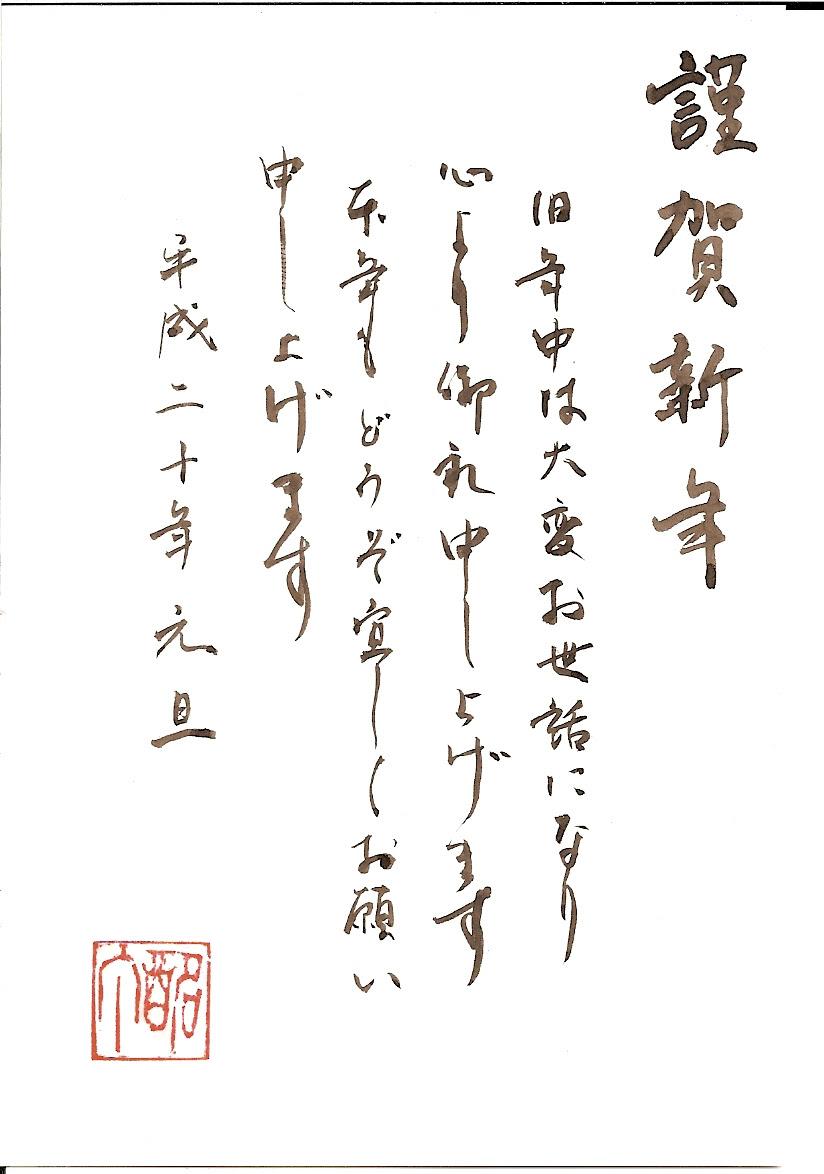 謹賀新年
旧年中は大変お世話になり
心より御礼申し上げます
本年もどうぞ宜しくお願い
申し上げます
平成二十年元旦